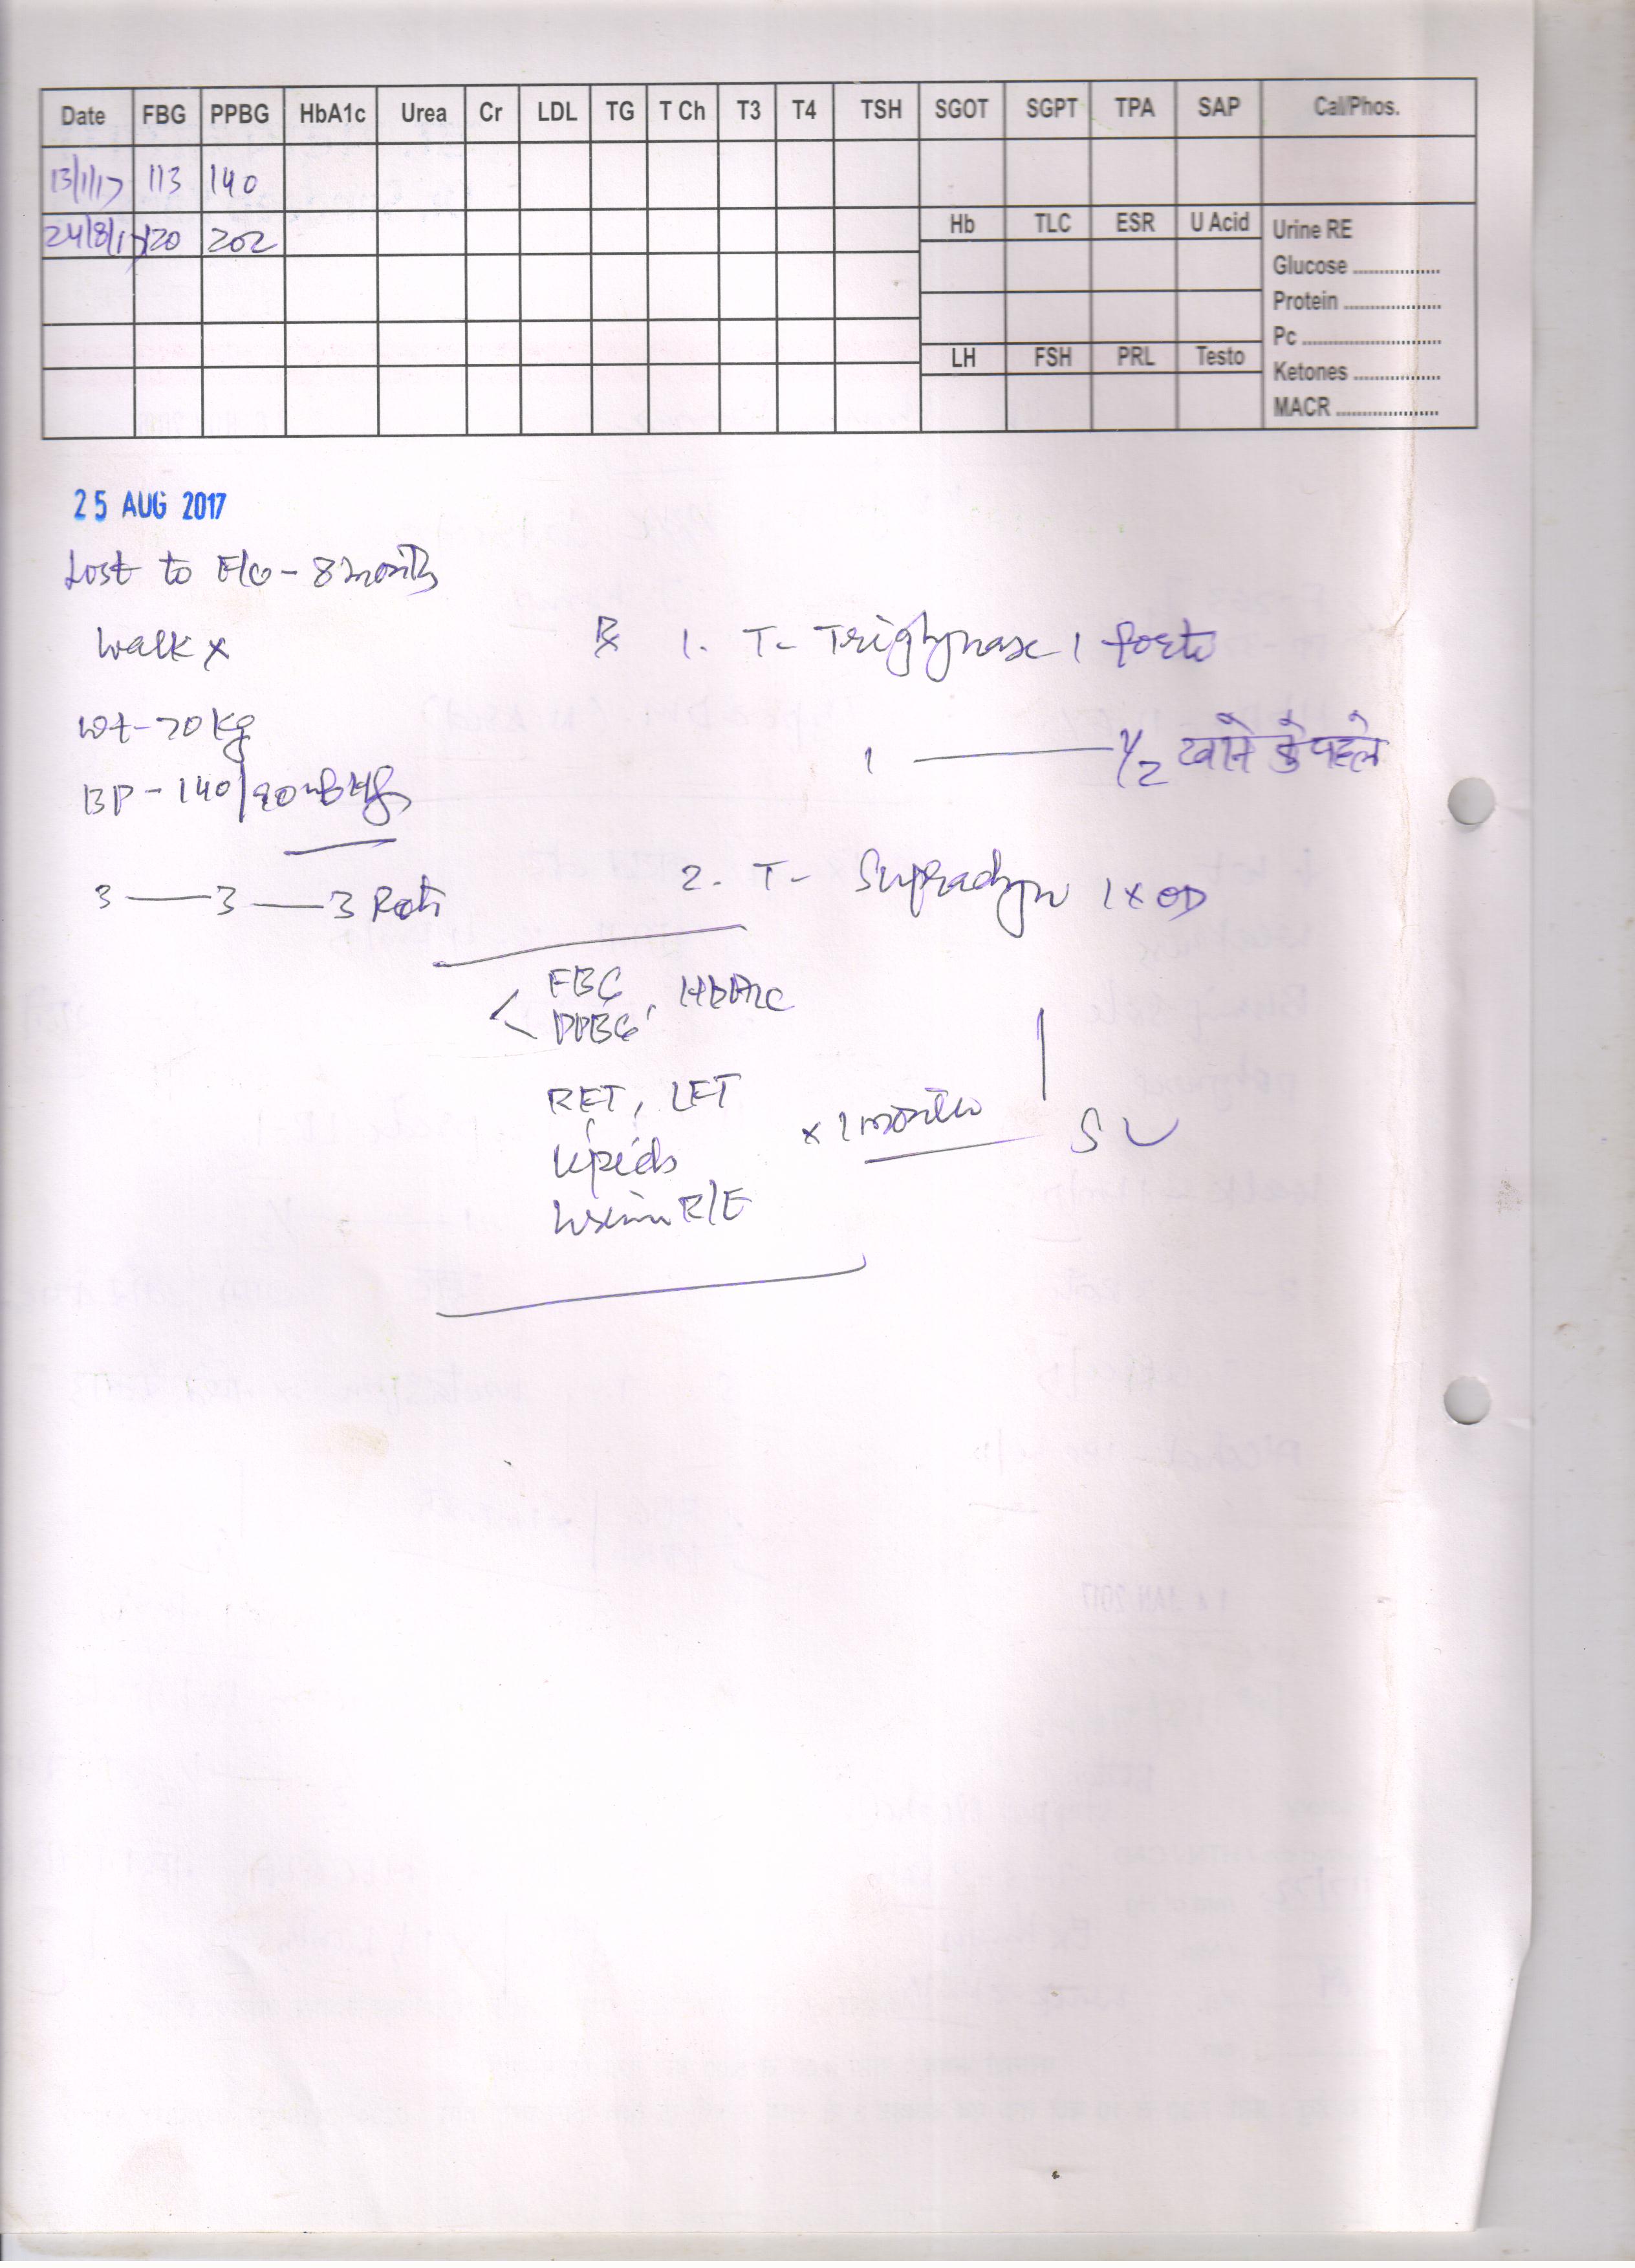 Date FBG PPBG HbA1c Urea Cr LDL TG T Ch T3 T4 TSH SGOT SGPT TPA SAP Cal/Phos.
13/1/17 113 140
24/8/17 120 202
Hb TLC ESR U Acid Urine RE
Glucose ..................
Protein ....................
Pc .............................
LH FSH PRL Testo
Ketones ..................
MACR .....................
25 AUG 2017
Lost to F/U - 8 months
Walk x
Wt - 70 kg
BP - 140/90 mmHg
3 — 3 — 3 Roti
Rx 1. T- Triglynase 1 forte
1 — 1/2 खाने के पहले
2. T- Supradyn 1 x OD
FBG
PPBG, HbA1c
RFT, LFT
Lipids
Urine R/E
x 1 month